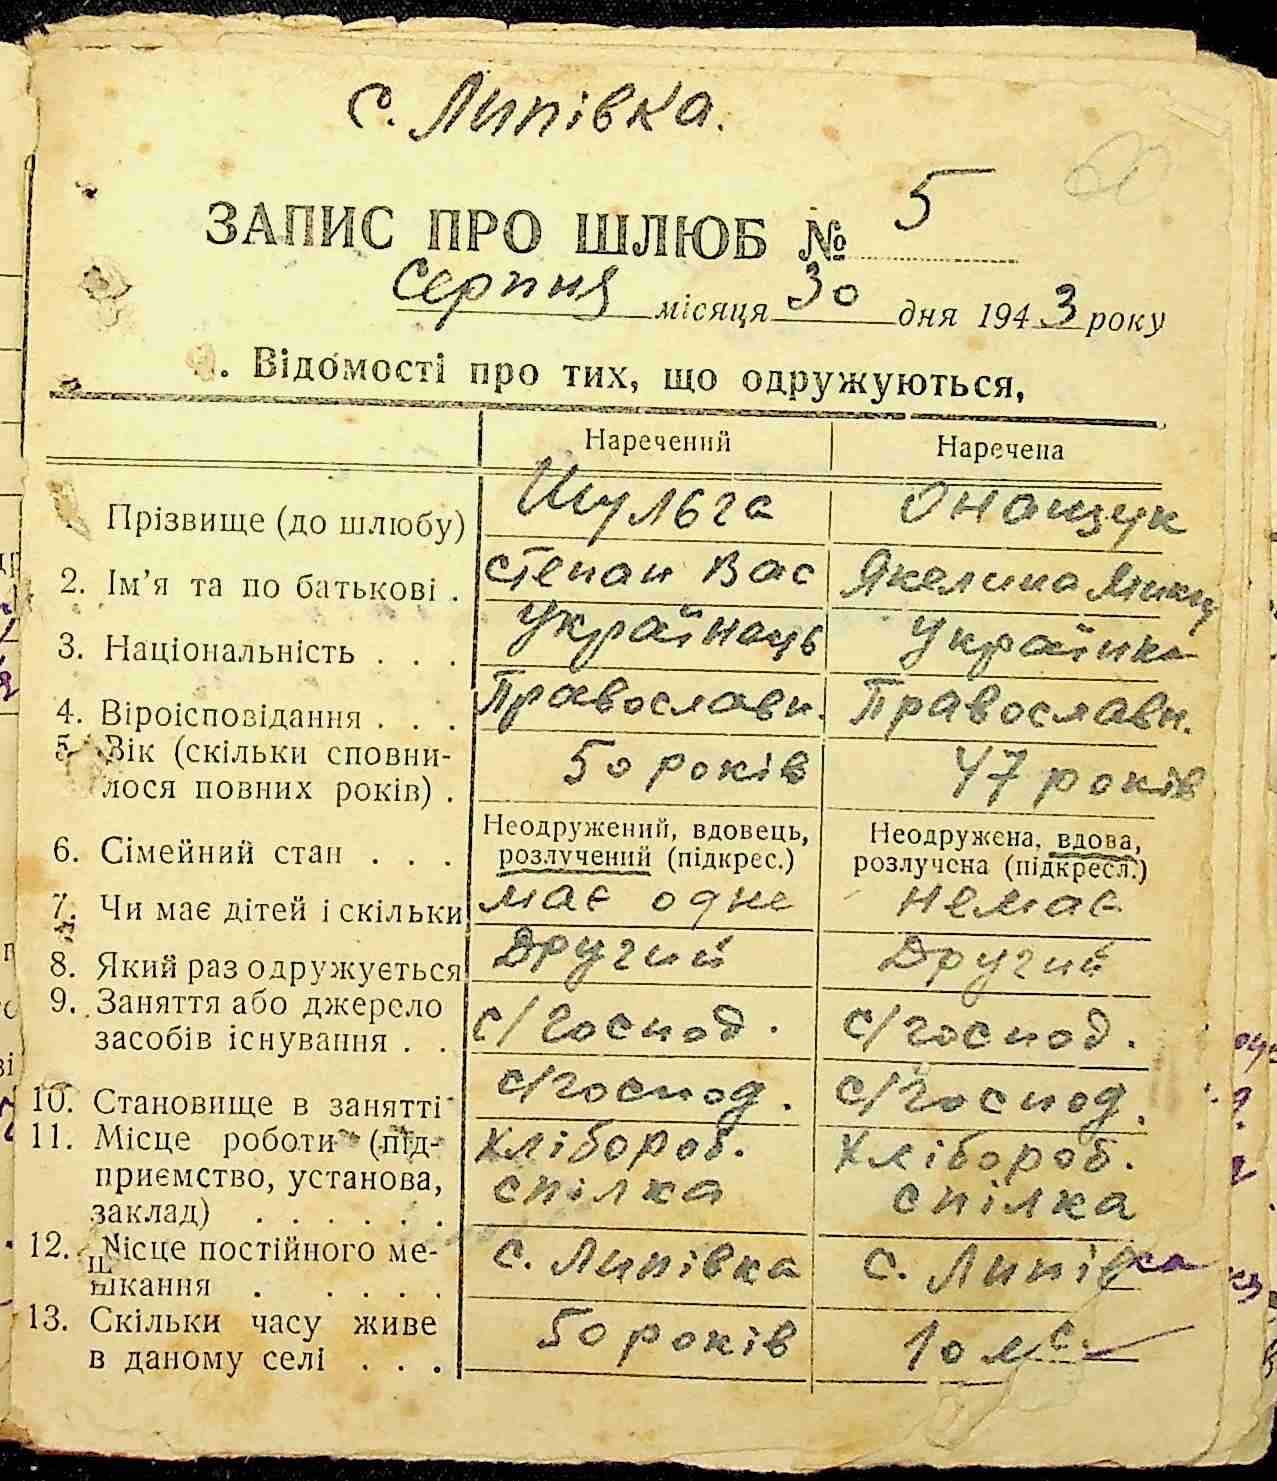 с. Липівка.
ЗАПИС ПРО ШЛЮБ № 5
серпня місяця 30 дня 1943 року
. Відомості про тих, що одружуються,
Наречений Наречена
Прізвище (до шлюбу) Шульга Онащук
2. Ім'я та по батькові . Степан Вас Якелина
3. Національність . . . Українець Українка
4. Віроісповідання . . . Православн. Православн.
5. Вік (скільки сповни-
лося повних років) . 50 років 47 років
6. Сімейний стан . . . Неодружений, вдовець, розлучений (підкрес.) Неодружена, вдова, розлучена (підкресл.)
7. Чи має дітей і скільки має одне немає
8. Який раз одружується Другий Другий
9. Заняття або джерело
засобів існування . . с/господ. с/господ.
10. Становище в занятті с/господ. с/господ.
11. Місце роботи (під-
приємство, установа,
заклад) . . . . . . Хлібороб. спілка Хлібороб. спілка
12. Місце постійного ме-
шкання . . . . . с. Липівка с. Липівка
13. Скільки часу живе
в даному селі . . . 50 років 10 мс.